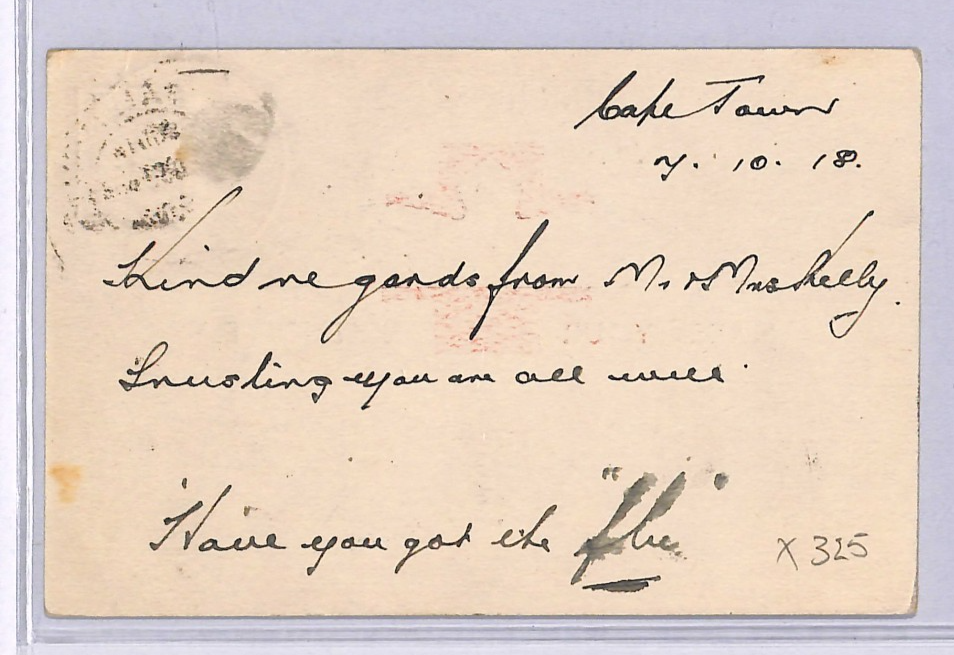 Cape Town
7. 10. 18.
Kind regards from Mr & Mrs Kelly.
Trusting you are all well.
Have you got the "flu"
X 325